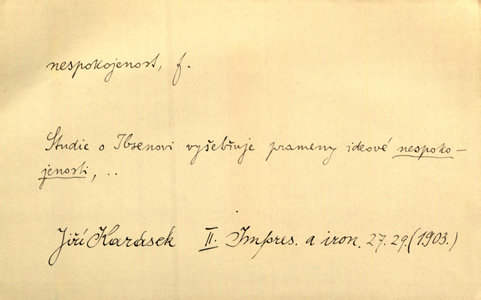 nespokojenost, f.
Studie o Ibsenovi vyšetřuje prameny ideové nespoko-
jenosti, ..
Jiří Karásek II. Impres. a iron. 27.29. (1903.)